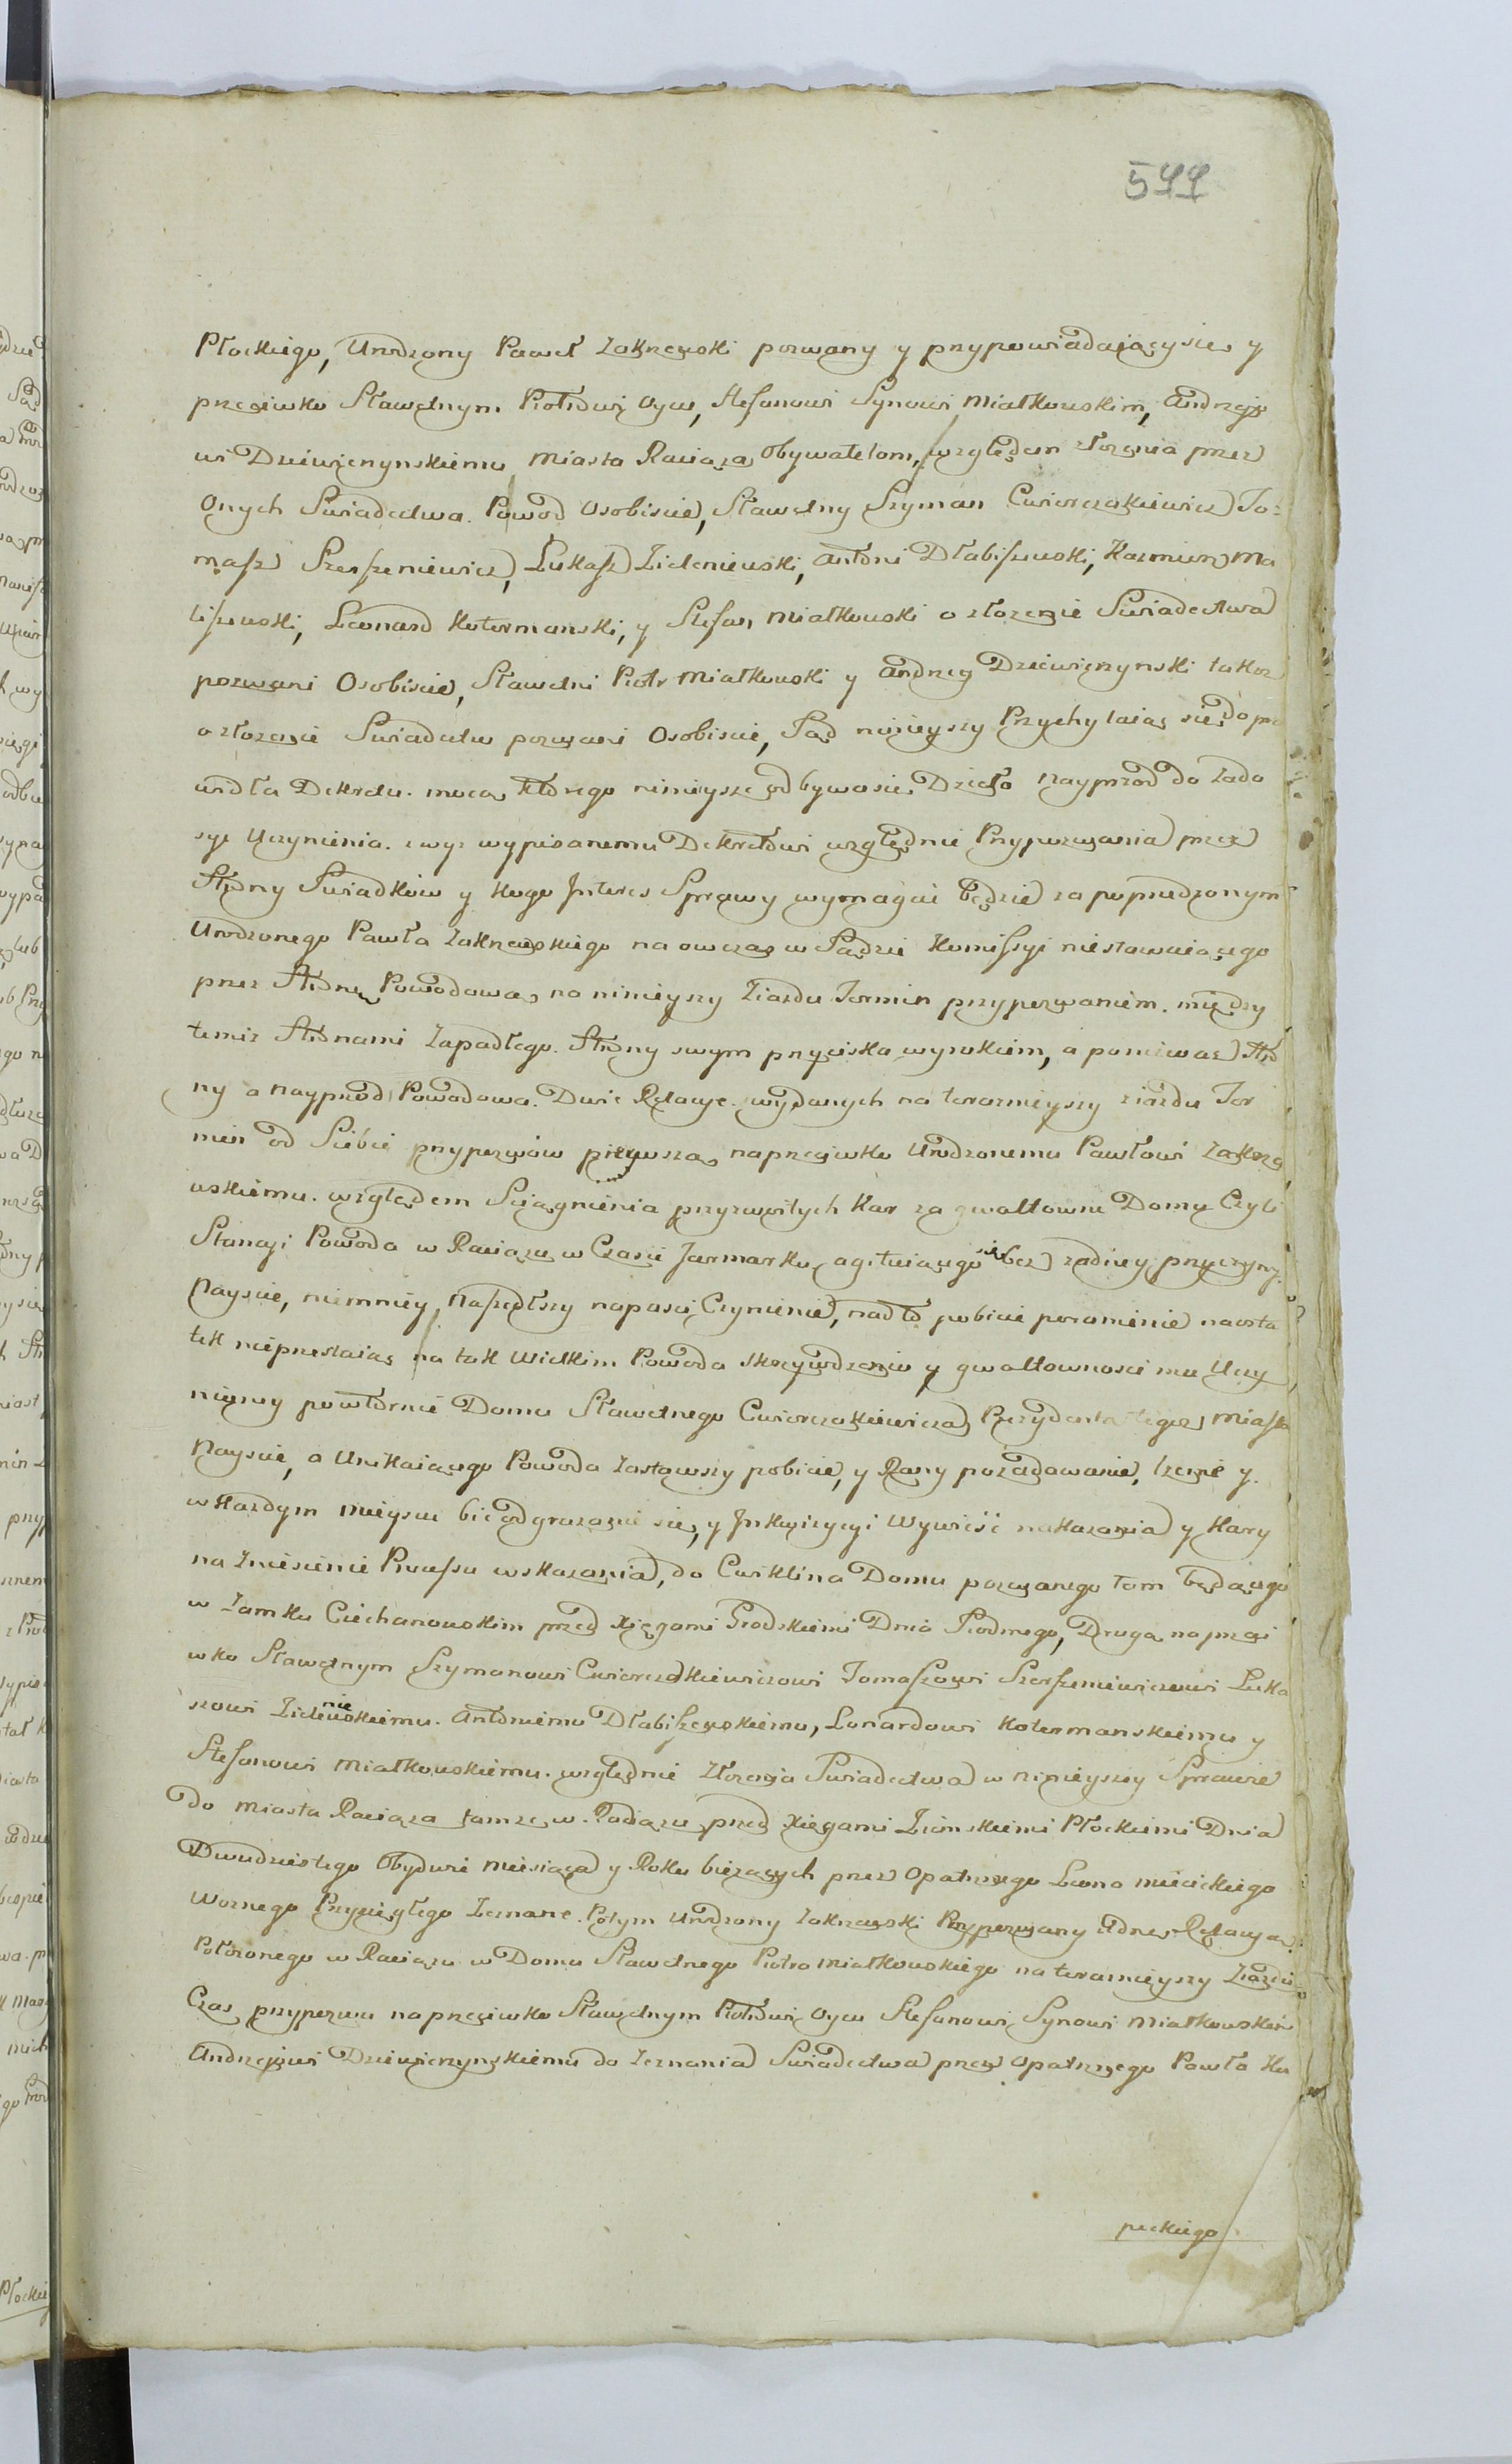 544
Płockiego, Urodzony Paweł Zakrzewski pozwany y przypowiadaiący się y
przeciwko Sławetnym Piotrowi Oycu, Stefanowi Synowi Miałkowskim, Andrzeio
wi Dziewięczynskiemu Miasta Raciąża Obywatelom, względem złożenia przez
Onych Swiadectwa. Powod Osobiscie, Sławetny Szyman Cwiorczakiewicz To-
masz Szerszeniewicz, Łukasz Zieleniewski, Antoni Dłabiszewski, Kazmierz Ma
liszewski, Leonard Kotermanski, y Stefan Miałkowski o złożenie Swiadectwa
pozwani Osobiscie, Sławetni Piotr Miałkowski y Andrzey Dziewięczynski także
o złożenie Swiadectw pozwani Osobiscie, Sąd ninieyszy Przychylaiąc się do pra
widła Dekretu. mocą ktorego ninieysze odbywa się Dzieło Nayprzod do Zado
syć Uczynienia. zwyż wypisanemu Dekretowi względnie Przypozwania przez
Strony Swiadkow y kogo Interes Sprawy wymagać będzie za poprzedzonym
Urodzonego Pawła Zakrzewskiego na owczas w Sądzie Komissyi niestawaiącego
przez Stronę Powodową na ninieyszy Ziazdu Termin przypozwaniem. między
temiż Stronami Zapadłego. Strony swym przyciska wyrokiem, a ponieważ Stro
ny a nayprzod Powodowa. Dwie Relacye. wydanych na teraznieyszy ziazdu Ter
min od Siebie przypozwow pierwszą naprzeciwko Urodzonemu Pawłowi Zakrze
wskiemu. względem Sciągnienia przyzwoitych Kar za gwałtowne Domu Czyli
Stancyi Powoda w Raciążu w Czasie Jarmarku agituiącego się bez żadney przyczyny
Nayscie, niemniey, Naszedłszy napasci Czynienie, nad to pobicie poranienie naosta
tek nieprzestaiąc na tak Wielkim Powoda skrzywdzeniu y gwałtownosci mu Uczy
nioney powtornie Domu Sławetnego Cwiorczakiewicza Prezydenta tegoż Miasta
Nayscie, a Unikaiącego Powoda Zastawszy pobicie, y Rany pozadawanie, lżenie y
w każdym mieyscu bić odgrażanie się, y Inkwizycyi Wywieść nakazania y Kary
na Zniesienie Processu wskazania, do Cwiklina Domu pozwanego tam będącego
w Zamku Ciechanowskim przed Xięgami Grodskiemi Dnia Siodmego, Drugą naprzeci
wko Sławetnym Szymonowi Cwiorczakiewiczowi Tomaszowi Szerszeniewiczowi Łuka
szowi Zieleniewskiemu. Antoniemu Dłabiszewskiemu, Lenardowi Kotermanskiemu y
Stefanowi Miałkowskiemu. względnie Złożenia Swiadectwa w ninieyszey Sprawie
do Miasta Raciąża tamże w. Radiążu przed Xięgami Ziemskiemi Płockiemi Dnia
Dwudziestego Obydwie Miesiąca y Roku bieżących przez Opatrznego Leona Miecickiego
Woznego Przysięgłego Zeznane. Potym Urodzony Zakrzewski Przypozwany iedną Relacyą
Położonego w Raciążu w Domu Sławetnego Piotra Miałkowskiego na teraznieyszy Ziazdu
Czas przypozwu naprzeciwko Sławetnym Piotrowi Oycu Stefanowi Synowi Miałkowskim
Andrzeiowi Dziewięczynskiemu do Zeznania Swiadectwa przez Opatrznego Pawła Ku
peckiego